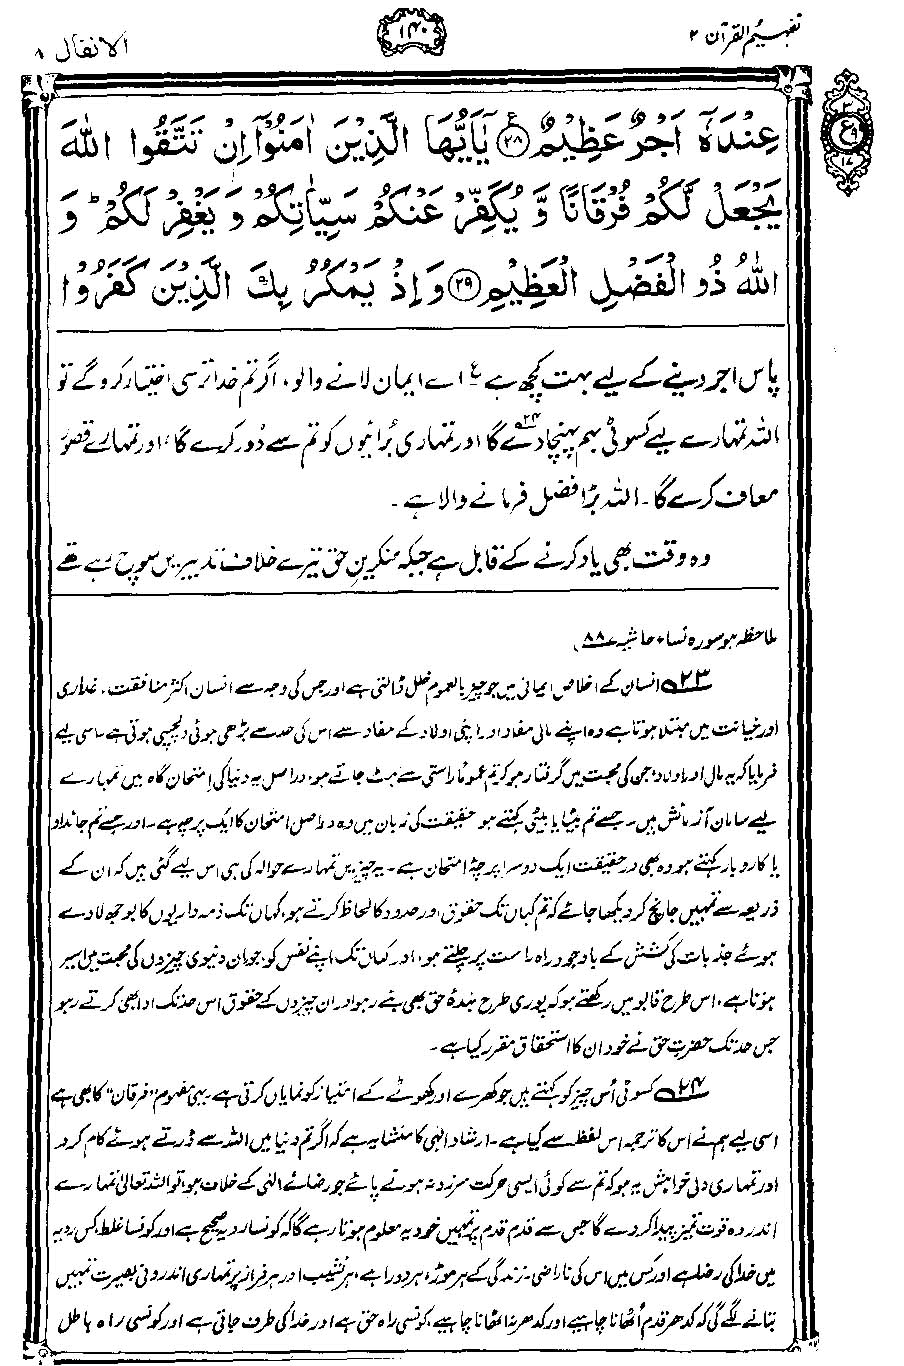 تفہیم القرآن ۲
۱۴۰
الانفال ۸
عِنْدَهٗٓ اَجْرٌ عَظِيْمٌ ﴿۲۸﴾ يٰۤاَيُّهَا الَّذِيْنَ اٰمَنُوْۤا اِنْ تَتَّقُوا اللّٰهَ
يَجْعَلْ لَّكُمْ فُرْقَانًا وَّ يُكَفِّرْ عَنْكُمْ سَيِّاٰتِكُمْ وَ يَغْفِرْ لَكُمْ ؕ وَ
اللّٰهُ ذُو الْفَضْلِ الْعَظِيْمِ ﴿۲۹﴾ وَ اِذْ يَمْكُرُ بِكَ الَّذِيْنَ كَفَرُوْا
۳
ع ۹
۱۷
پاس اجر دینے کے لیے بہت کچھ ہے ع اے ایمان لانے والو، اگر تم خدا ترسی اختیار کرو گے تو
اللہ تمہارے لیے کسوٹی بہم پہنچا دے گا ۲۴ اور تمہاری بُرائیوں کو تم سے دُور کرے گا، اور تمہارے قصور
معاف کرے گا۔ اللہ بڑا فضل فرمانے والا ہے۔
وہ وقت بھی یاد کرنے کے قابل ہے جبکہ منکرینِ حق تیرے خلاف تدبیریں سوچ رہے تھے
ملاحظہ ہو سورہ نساء، حاشیہ ۸۸)
۲۳ انسان کے اخلاص ایمانی میں جو چیز بالعموم خلل ڈالتی ہے اور جس کی وجہ سے انسان اکثر منافقت، غداری
اور خیانت میں مبتلا ہوتا ہے وہ اپنے مالی مفاد اور اپنی اولاد کے مفاد سے اس کی حد سے بڑھی ہوئی دلچسپی ہوتی ہے۔ اسی لیے
فرمایا کہ یہ مال اور اولاد، جن کی محبت میں گرفتار ہو کر تم عموماً راستی سے ہٹ جاتے ہو، دراصل یہ دنیا کی امتحان گاہ میں تمہارے
لیے سامان آزمائش ہیں۔ جسے تم بیٹا یا بیٹی کہتے ہو حقیقت کی زبان میں وہ دراصل امتحان کا ایک پرچہ ہے۔ اور جسے تم جائداد
یا کاروبار کہتے ہو وہ بھی درحقیقت ایک دوسرا پرچۂ امتحان ہے۔ یہ چیزیں تمہارے حوالہ کی ہی اس لیے گئی ہیں کہ ان کے
ذریعہ سے تمہیں جانچ کر دیکھا جائے کہ تم کہاں تک حقوق اور حدود کا لحاظ کرتے ہو، کہاں تک ذمہ داریوں کا بوجھ لادے
ہوئے جذبات کی کشش کے باوجود راہ راست پر چلتے ہو، اور کہاں تک اپنے نفس کو، جو ان دنیوی چیزوں کی محبت میں اسیر
ہوتا ہے، اس طرح قابو میں رکھتے ہو کہ پوری طرح بندۂ حق بھی بنے رہو اور ان چیزوں کے حقوق اس حد تک ادا بھی کرتے رہو
جس حد تک حضرتِ حق نے خود ان کا استحقاق مقرر کیا ہے۔
۲۴ کسوٹی اُس چیز کو کہتے ہیں جو کھرے اور کھوٹے کے امتیاز کو نمایاں کرتی ہے یہی مفہوم "فرقان" کا بھی ہے
اسی لیے ہم نے اس کا ترجمہ اس لفظ سے کیا ہے۔ ارشاد الٰہی کا منشا یہ ہے کہ اگر تم دنیا میں اللہ سے ڈرتے ہوئے کام کرو
اور تمہاری دلی خواہش یہ ہو کہ تم سے کوئی ایسی حرکت سرزد نہ ہونے پائے جو رضائے الٰہی کے خلاف ہو، تو اللہ تعالیٰ تمہارے
اندر وہ قوت تمیز پیدا کر دے گا جس سے قدم قدم پر تمہیں خود یہ معلوم ہوتا رہے گا کہ کونسا رویہ صحیح ہے اور کونسا غلط، کس رویہ
میں خدا کی رضا ہے اور کس میں اس کی ناراضی۔ زندگی کے ہر موڑ، ہر دوراہے، ہر نشیب اور ہر فراز پر تمہاری اندرونی بصیرت تمہیں
بتانے لگے گی کہ کدھر قدم اُٹھانا چاہیے اور کدھر نہ اٹھانا چاہیے، کونسی راہ حق ہے اور خدا کی طرف جاتی ہے اور کونسی راہ باطل